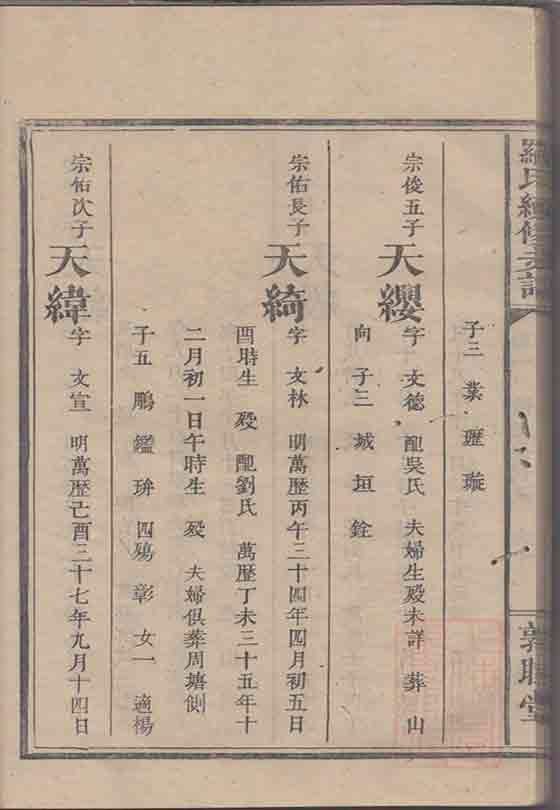 羅氏續修支譜
敦睦堂
子三 業 瓑 璇
宗俊五子 天纓 字 文德 配吳氏 夫婦生殁未詳 葬 山
向 子三 城 垣 銓
宗佑長子 天綺 字 文林 明萬歷丙午三十四年四月初五日
酉時生 殁 配劉氏 萬歷丁未三十五年十
二月初一日午時生 殁 夫婦俱葬周塘側
子五 鵬 鑑 玬 四殤 彰 女一 適楊
宗佑次子 天緯 字 文宣 明萬歷己酉三十七年九月十四日